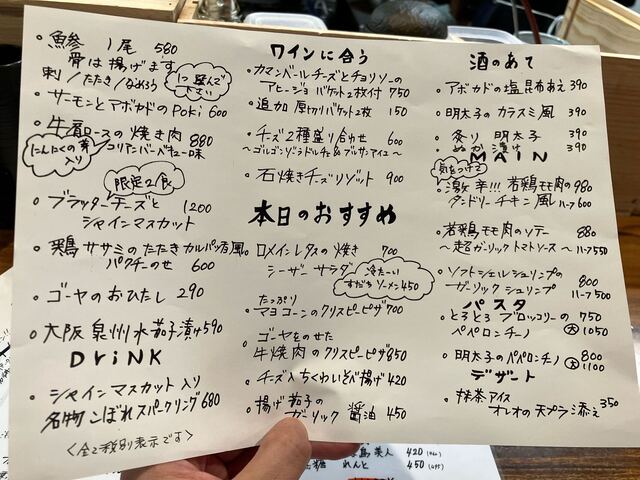 ・魚参 1尾 580
骨は揚げます
刺/たたき/なめろう
1つ選んで下さい
・サーモンとアボカドのPoki 600
・牛肩ロースの焼き肉 880
コリアンバーベキュー味
にんにくの芽入り
限定2食
・ブラッターチーズと 1200
シャインマスカット
・鶏ササミのたたきカルパッチョ風
パクチーのせ 600
・ゴーヤのおひたし 290
・大阪泉州水茄子漬け 590
DRiNK
・シャインマスカット入り
名物こぼれスパークリング 680
<全て税別表示です>
ワインに合う
・カマンベールチーズとチョリソーの
アヒージョ バケット2枚付 750
・追加 厚切りバケット2枚 150
・チーズ2種盛り合せ 600
〜ゴルゴンゾーラドルチェ&ブルサンアイユ〜
・石焼きチーズリゾット 900
本日のおすすめ
・ロメインレタスの焼き 700
シーザーサラダ
冷たーい
すだちソーメン 450
・たっぷり
マヨコーンのクリスピーピザ 700
・ゴーヤをのせた
牛焼肉のクリスピーピザ 850
・チーズ入ちくわいそべ揚げ 420
・揚げ茄子の
ガーリック醤油 450
酒のあて
・アボカドの塩昆布あえ 390
・明太子のカラスミ風 390
・炙り 明太子 390
・ぬか漬け 390
MAIN
気をつけて
・激辛!!! 若鶏モモ肉の 980
タンドリーチキン風 ハーフ600
・若鶏モモ肉のソテー 880
〜超ガーリックトマトソース〜 ハーフ550
・ソフトシェルシュリンプの 800
ガーリックシュリンプ ハーフ500
パスタ
・とろとろブロッコリーの 750
ペペロンチーノ 大1050
・明太子のペペロンチーノ 800
大1100
デザート
・抹茶アイス 350
オレオの天プラ添え
美人 420
糖 れんと 450